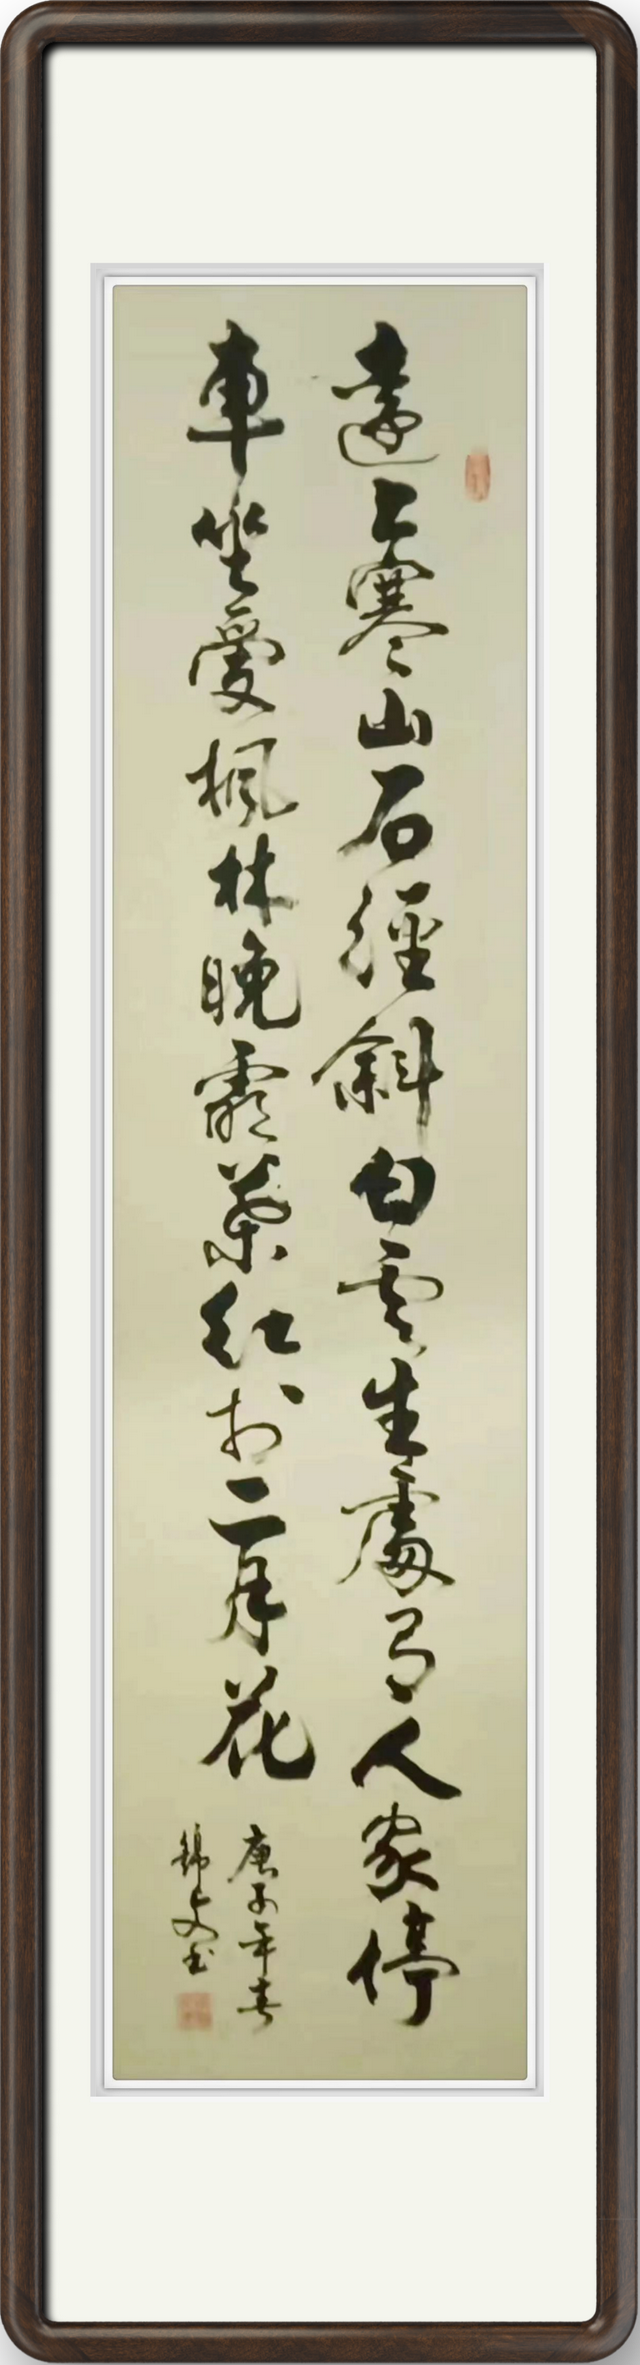 遠上寒山石徑斜白雲生處有人家停
車坐愛楓林晚霜葉紅於二月花
庚子年春
錦文书